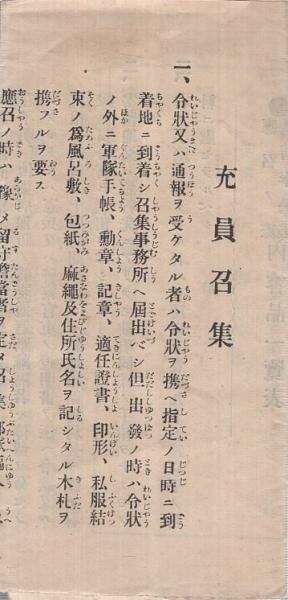 充員召集
一、令狀又ハ通報ヲ受ケタル者ハ令狀ヲ携ヘ指定ノ日時ニ到
着地ニ到着シ召集事務所ヘ屆出ベシ但出發ノ時ハ令狀
ノ外ニ軍隊手帳、勳章、記章、適任證書、印形、私服結
束ノ爲風呂敷、包紙、麻繩及住所氏名ヲ記シタル木札ヲ
携フルヲ要ス
應召ノ時ハ豫メ留守擔當者ヲ定メ召集部隊編入